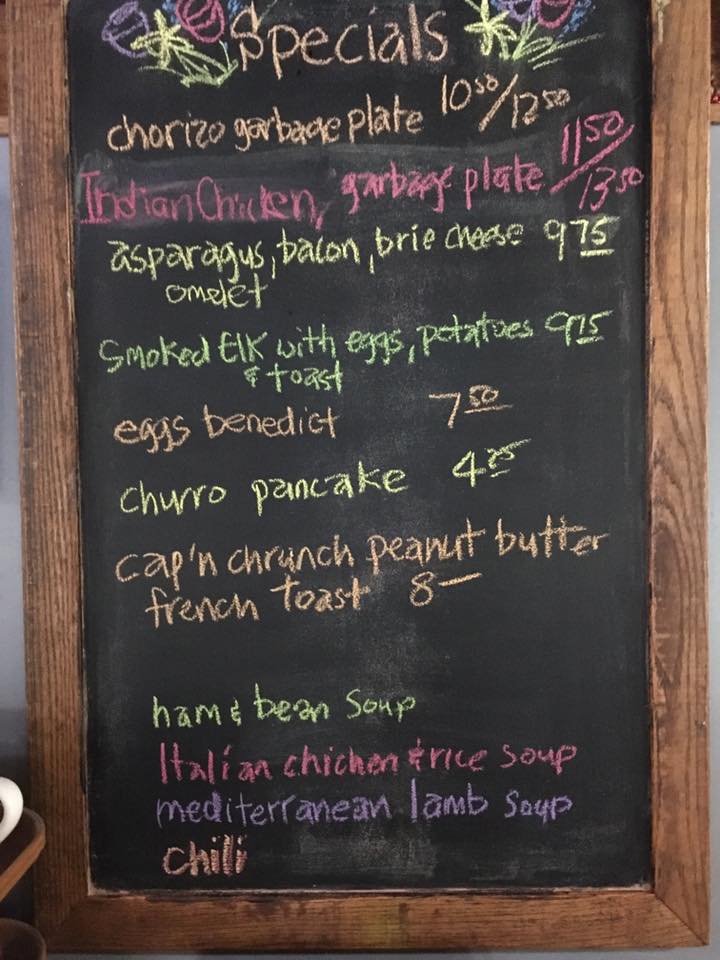 Specials
chorizo garbage plate 10 50/12 50
Indian Chicken, garbage plate 11 50/13 50
asparagus, bacon, brie cheese 9 75
omelet
Smoked Elk with eggs, potatoes 9 75
& toast
eggs benedict 7 50
churro pancake 4 25
cap'n chrunch peanut butter
french toast 8 —
ham & bean soup
Italian chicken & rice soup
mediterranean lamb soup
chili